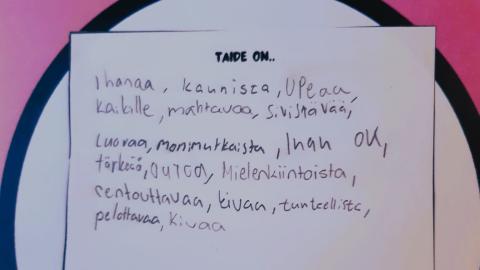 TAIDE ON..
Ihanaa, kaunista, UPeaa,
Kaikille, mahtavaa, Sivistävää,
Luovaa, monimutkaista, Ihan OK,
tärkeää, OUTOA, Mielenkiintoista,
rentouttavaa, kivaa, tunteellista,
pelottavaa, Kivaa